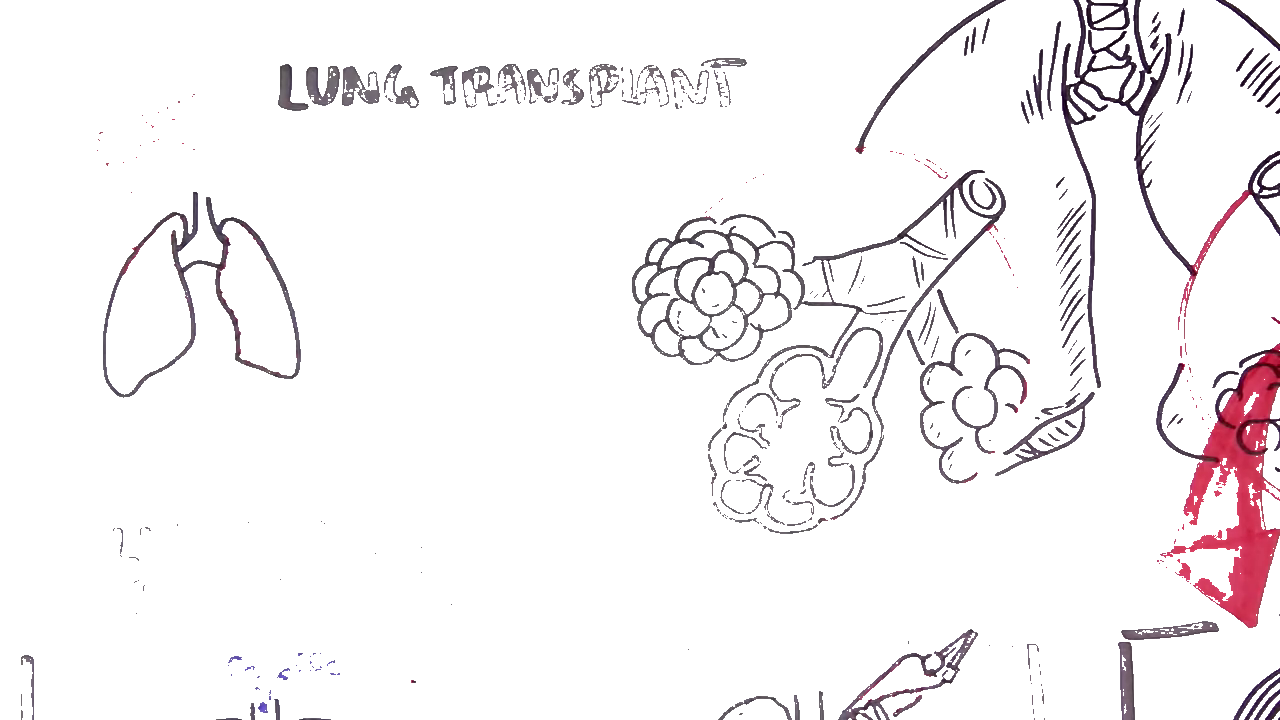 LUNG TRANSPLANT